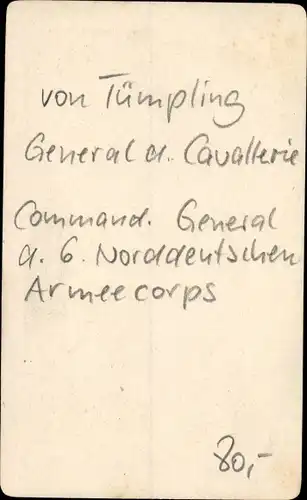 von Tümpling
General d. Cavallerie
Command. General
d. 6. Norddeutschen
Armeecorps
80,-